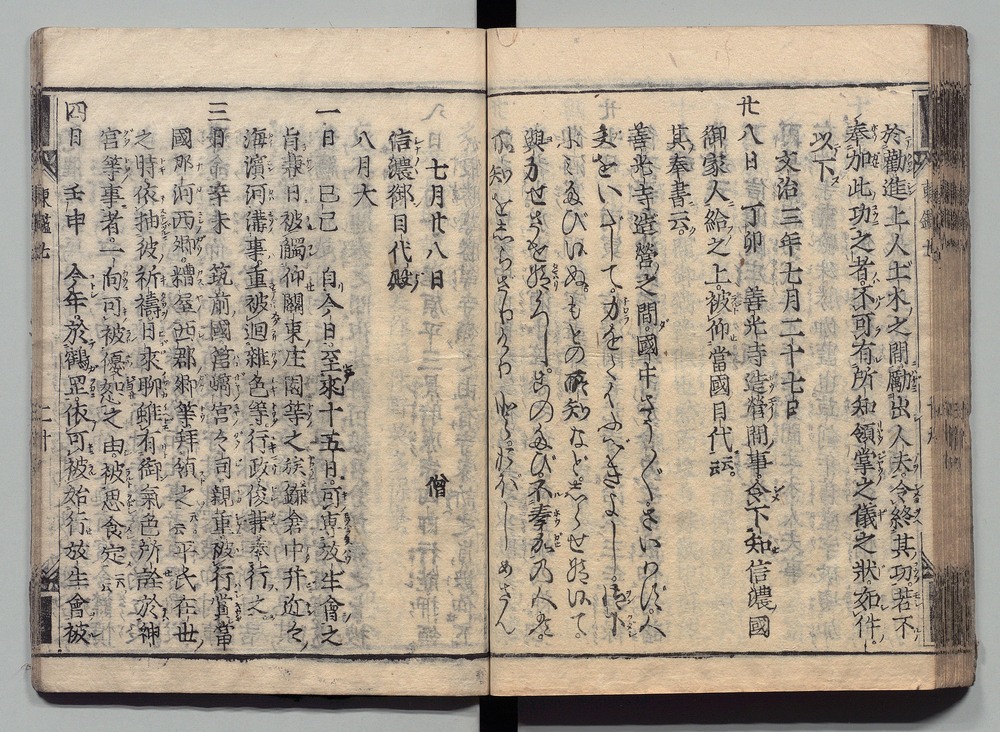 於勸進上人土木之間勵出人夫令終其功若不
奉加此功之者不可有所知領掌之儀之狀如件
以下
文治三年七月二十七日
廿八日 丁卯 善光寺造營間事令下知信濃國
御家人給之上被仰當國目代云云
其奉書云
善光寺造營之間國中さうくさいわす人
夫をいたしてかをくはふへきよし
たひぬもとの所知なとしらせ給はて
與力せさせ給ハしこのたひ不奉加の人
所知をしらさりけりとおほしめさん
七月廿八日 僧
信濃御目代殿
八月大
一日 己巳 自今日至來十五日可專放生會之
旨兼日被觸仰關東庄園等之族鎌倉中并近々
海濱河溝事重被廻雜色等行政俊兼奉行之
三日 辛未 筑前國筥崎宮々司親重被行賞當
國那珂西郷糟屋西郡郷等拜領之云云平氏在世
之時依抽彼祈禱日來聊雖有御氣色所詮於神
宮等事者一向可被優恕之由被思食定云云
四日 壬申 今年於鶴岡依可被始行放生會被
東鑑七
二十